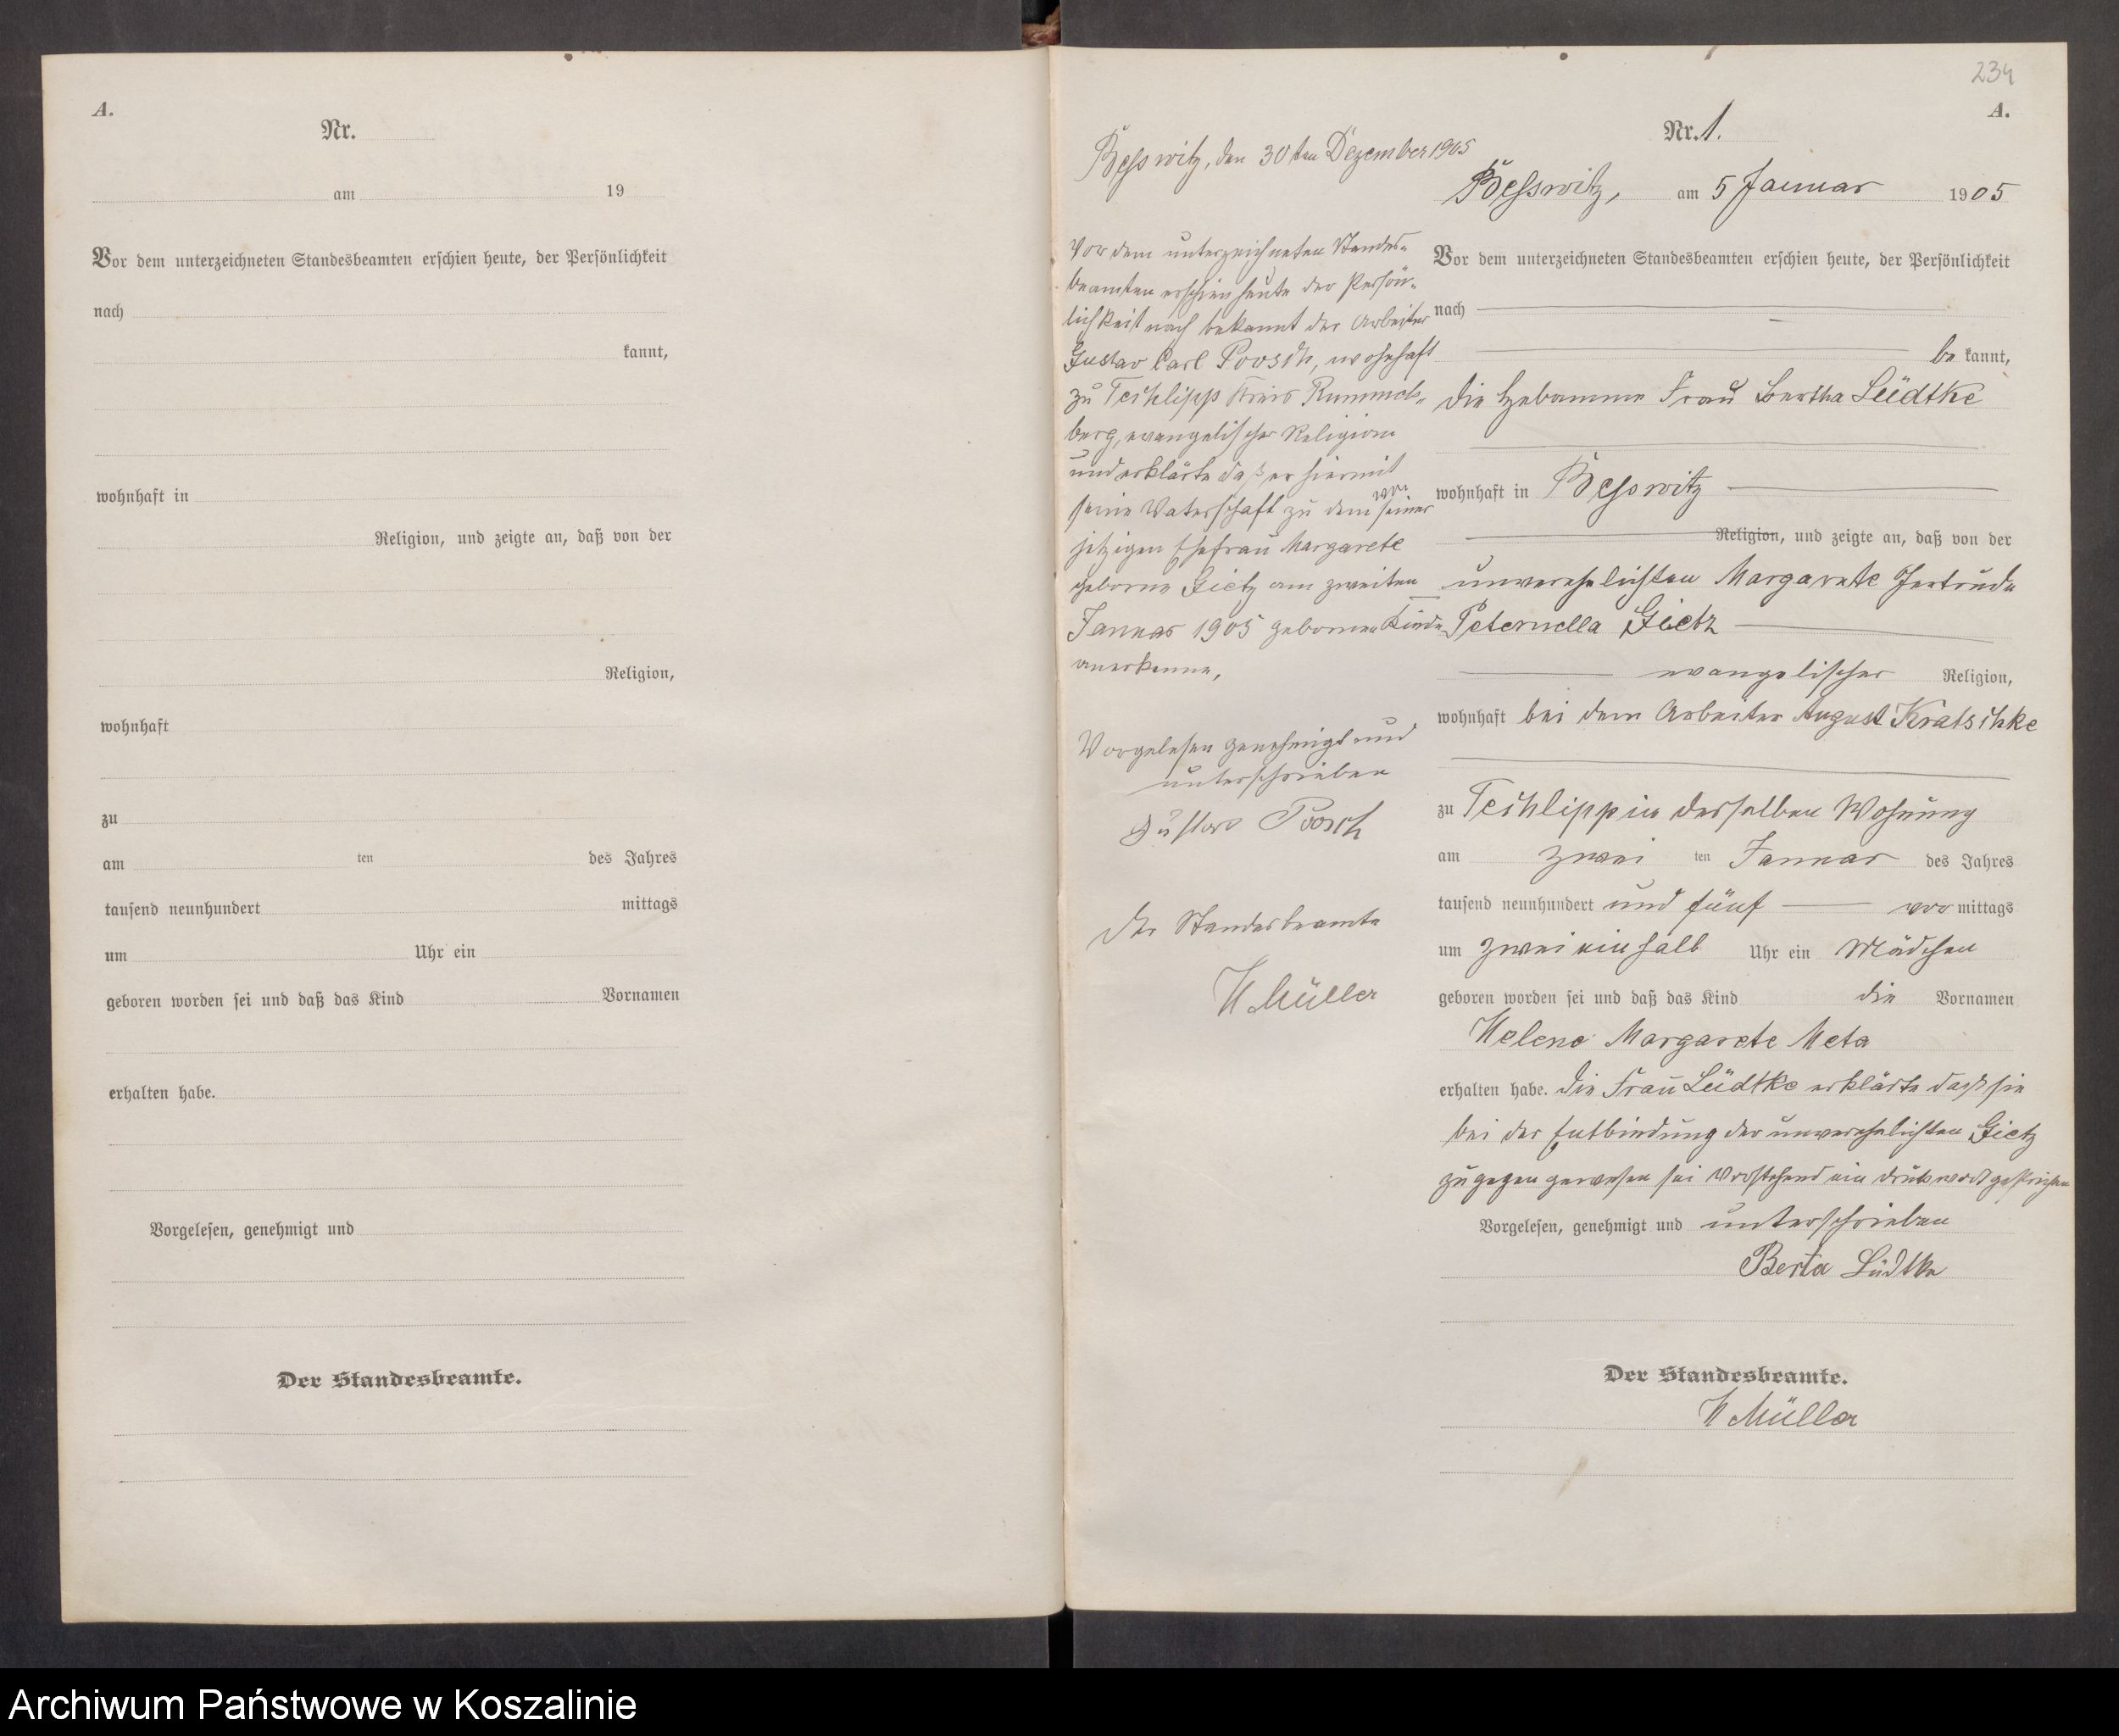 A.
Nr.
am 19
Vor dem unterzeichneten Standesbeamten erschien heute, der Persönlichkeit
nach
kannt,
wohnhaft in
Religion, und zeigte an, daß von der
Religion,
wohnhaft
zu
am ten des Jahres
tausend neunhundert mittags
um Uhr ein
geboren worden sei und daß das Kind Vornamen
erhalten habe.
Vorgelesen, genehmigt und
Der Standesbeamte.
234
A.
Besswitz, den 30ten Dezember 1905
Vor dem unterzeichneten Standes-
beamten erschien heute der Persön-
lichkeit nach bekannt der Arbeiter
Gustav Carl Poosch, wohnhaft
zu Techlipp Kreis Rummels-
berg, evangelischer Religion
und erklärte daß er hiermit
seine Vaterschaft zu dem von seiner
jetzigen Ehefrau Margarete
geborne Gietz am zweiten
Januar 1905 gebornen Kinde
anerkenne,
Vorgelesen genehmigt und
unterschrieben
Gustav Poosch
Der Standesbeamte
H Müller
Nr. 1.
Besswitz, am 5 Januar 1905
Vor dem unterzeichneten Standesbeamten erschien heute, der Persönlichkeit
nach
be kannt,
die Hebamme Frau Bertha Lüdtke
wohnhaft in Besswitz
Religion, und zeigte an, daß von der
unverehelichten Margarete Gertrude
Peternella Gietz
evangelischer Religion,
wohnhaft bei dem Arbeiter August Kratschke
zu Techlipp in desselben Wohnung
am zwei ten Januar des Jahres
tausend neunhundert und fünf vor mittags
um zwei ein halb Uhr ein Mädchen
geboren worden sei und daß das Kind die Vornamen
Helene Margarete Meta
erhalten habe. Die Frau Lüdtke erklärte daß sie
bei der Entbindung der unverehelichten Gietz
zugegen gewesen sei Vorstehend ein Druckwort gestrichen
Vorgelesen, genehmigt und unterschrieben
Berta Lüdtke
Der Standesbeamte.
H Müller
Archiwum Państwowe w Koszalinie